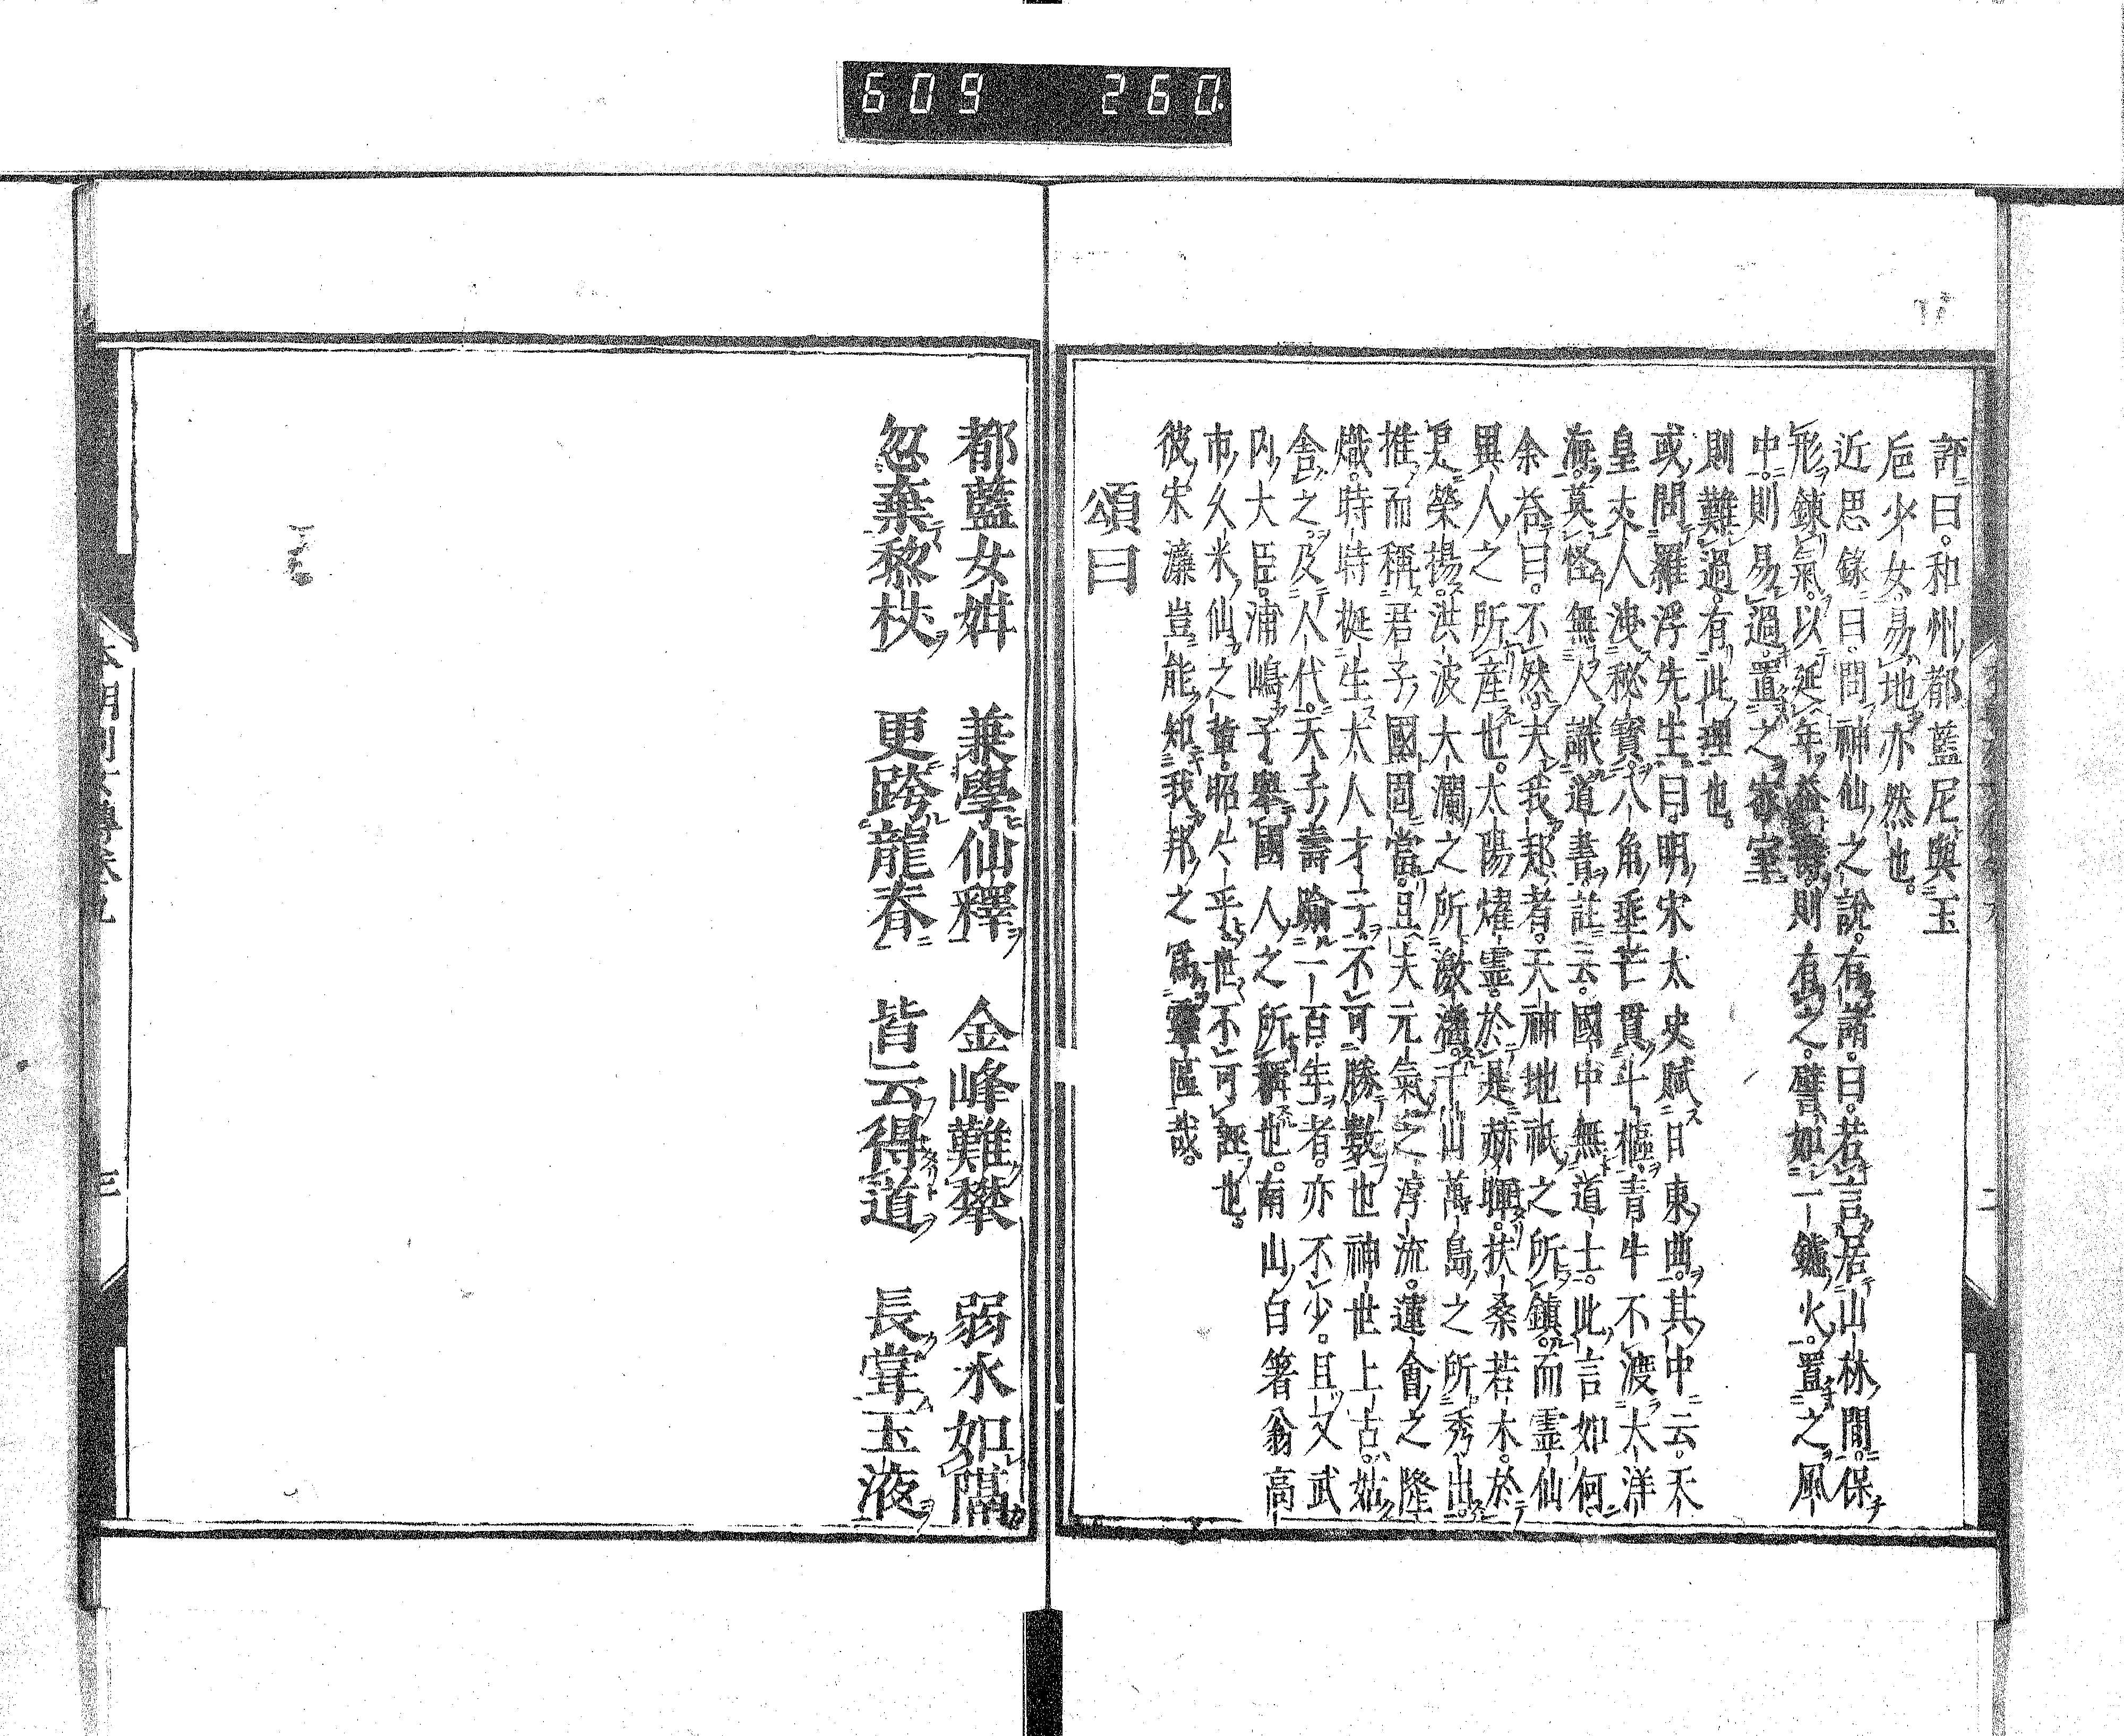 609 260
評曰。和州都藍尼與玉
巵少女。易地亦然也。
近思録曰。問神仙之說。有諸。曰。若言居山林間。保
形鍊氣。以延年益壽。則有之。譬如一鑪火。置之風
中。則易過。置之密室。
則難過。有此理也。
或問。羅浮先生曰。明宋太史賦日東曲。其中云。天
皇夾人洩秘寶。八角垂芒貫斗樞。青牛不渡大洋
海。莫怪無人識道書。註云。國中無道士。此言如何。
余答曰。不然。夫我邦者。天神地祇之所鎮。而霊仙
異人之所産也。太陽燿霊。於是赫暉。扶桑若木。於
是榮揚。洪波大瀾之所激灑。千山萬島之所秀出。
推而稱君子國固當。且夫元氣之淳流。蓮會之隆
熾。時時挺生大人才子。不可勝數也神世上古。姑
舍之。及人代。天子壽踰一百年者。亦不少。且又武
内大臣。浦嶋子擧國人之所稱也。南山白箸翁高
市久米仙之輩。昭昭乎世。不可誣也。
彼宋濂豈能知我邦之爲靈區哉。
頌曰
都藍女姙 兼學仙釋 金峰難攀 弱水如隔
忽棄黎杖 更跨龍春 皆云得道 長嘗玉液
三